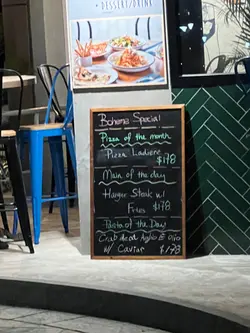 DESSERT/DRINK
Boheme Special
Pizza of the month
Pizza Ladiere
$178
Main of the day
Hanger Steak w/
Fries $178
Pasta of the Day
Crab meat Aglio E Olio
w/ Caviar $178